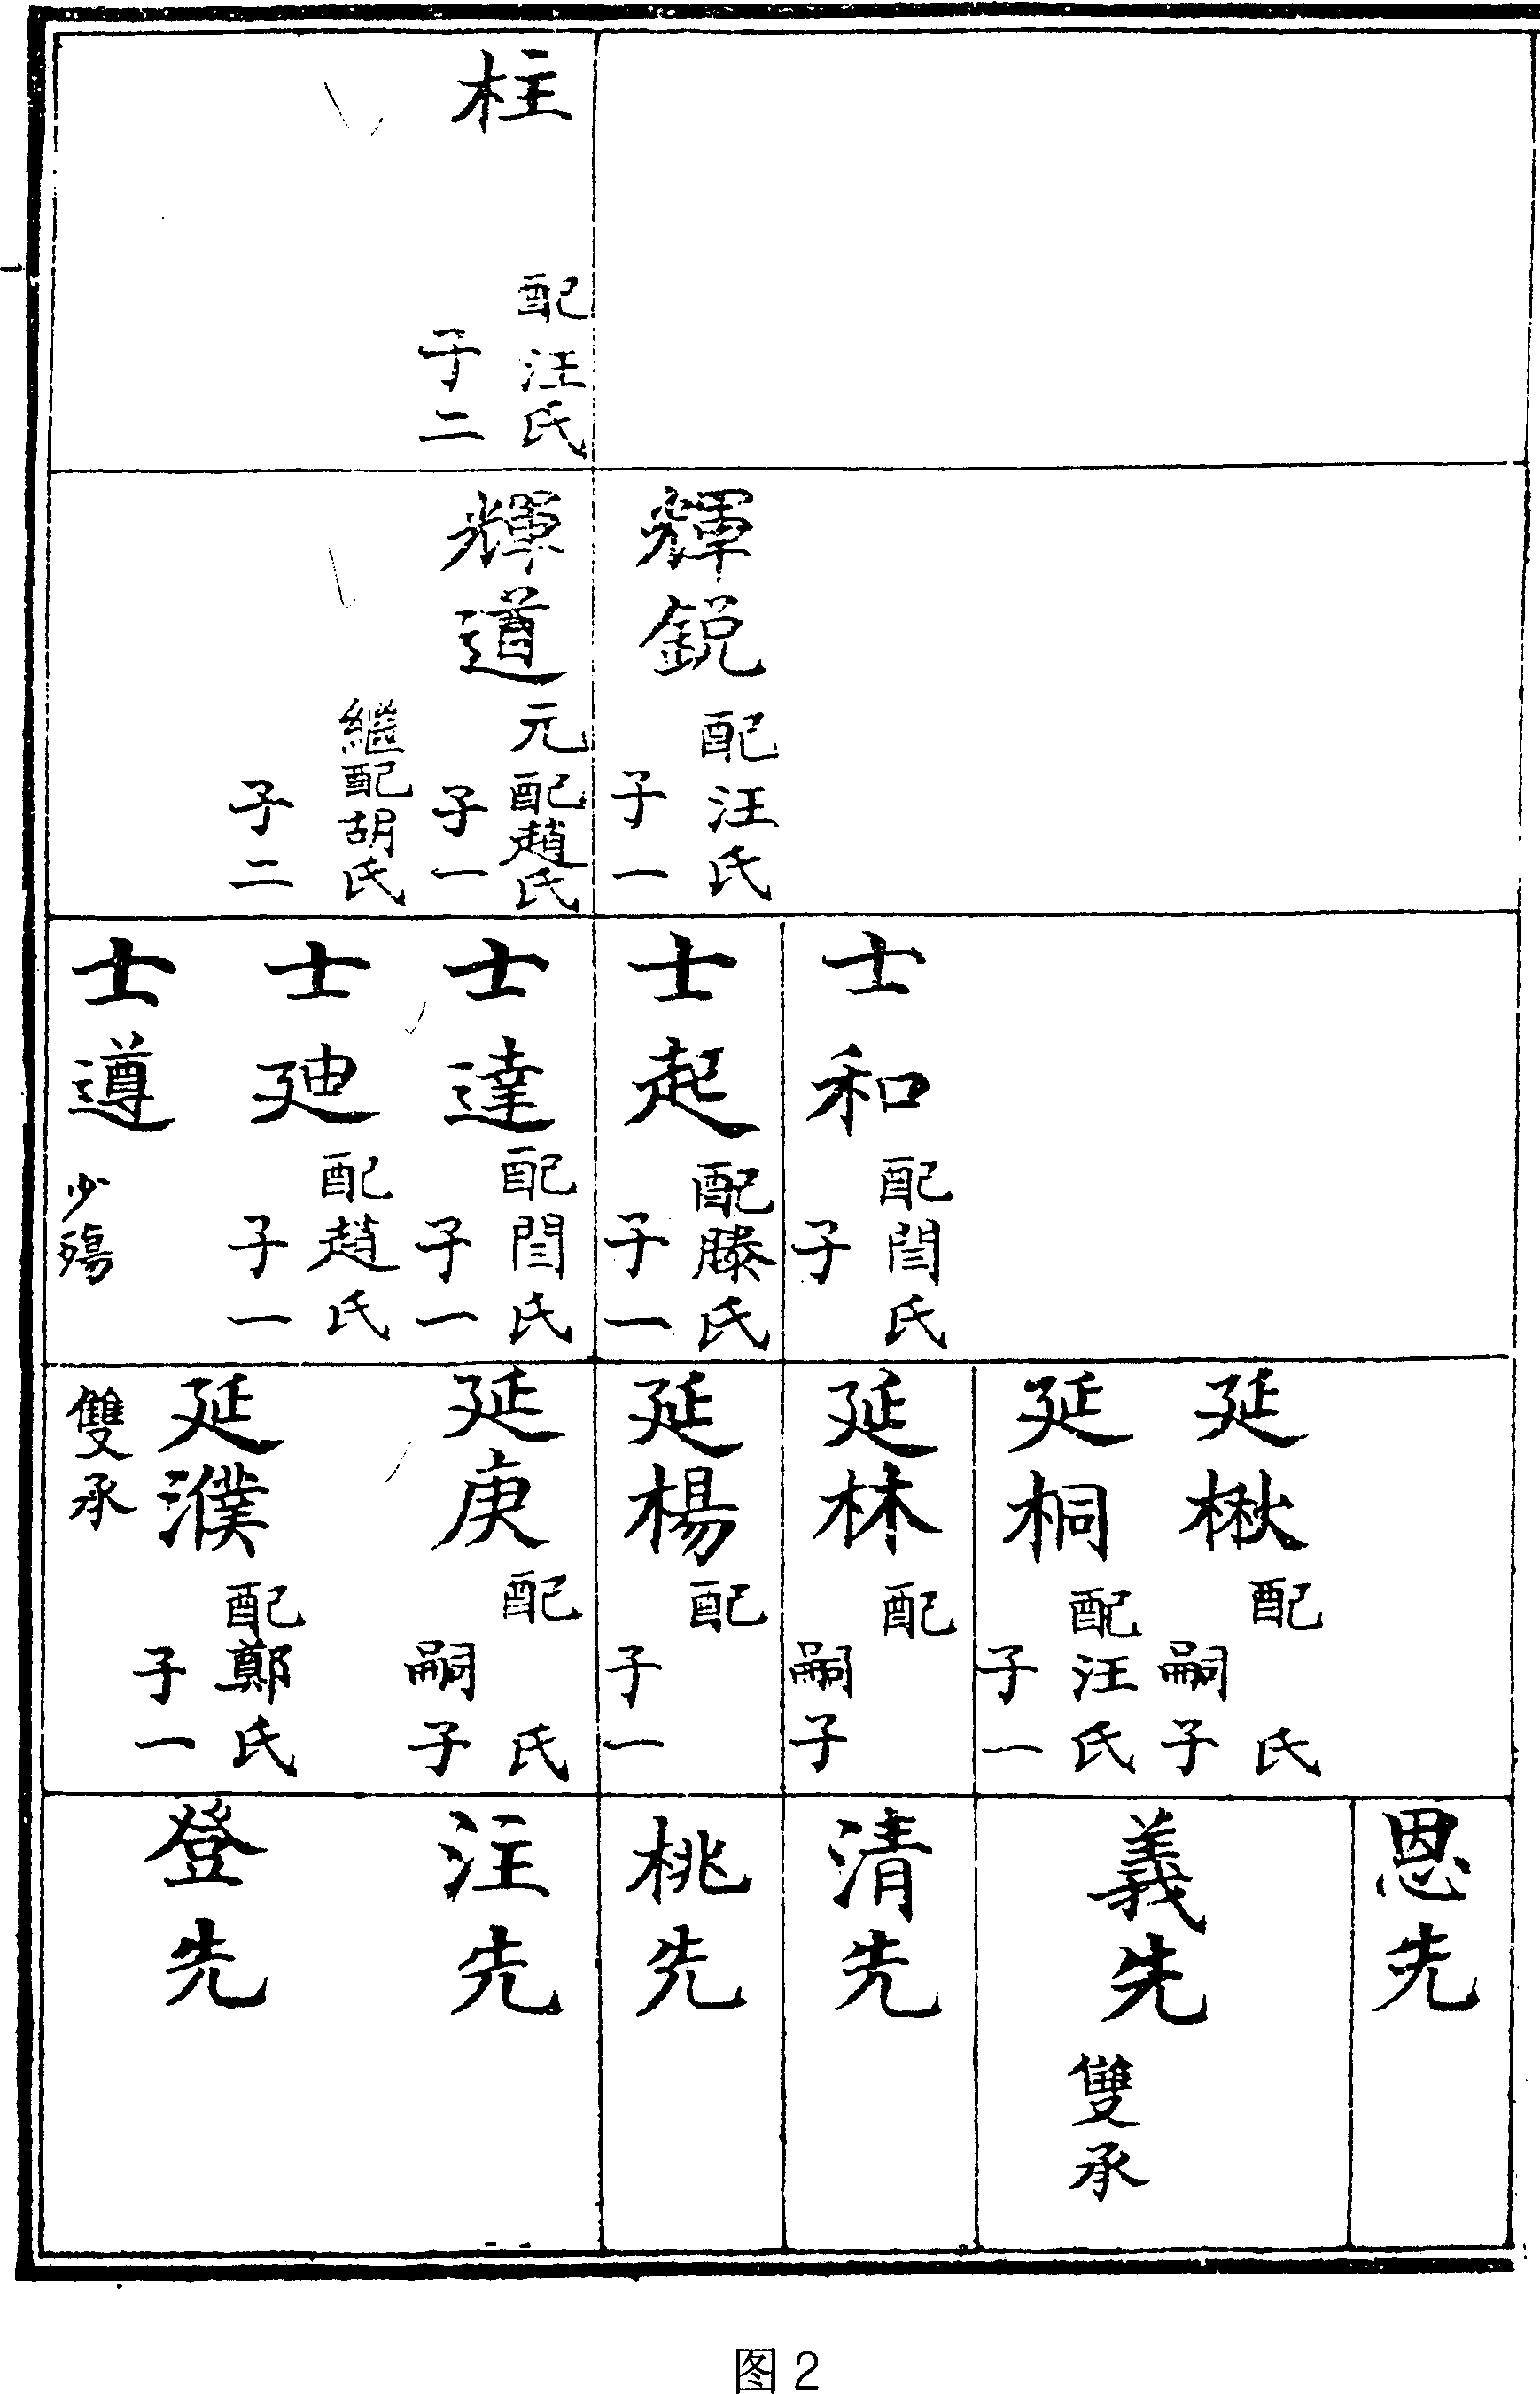 柱
配汪氏
子二
輝銳
配汪氏
子一
輝道
元配趙氏
子一
繼配胡氏
子二
士和
配閆氏
子
士起
配滕氏
子一
士達
配閆氏
子一
士廸
配趙氏
子一
士遵
少殤
延楸
配 氏
嗣子
延桐
配汪氏
子一
延林
配
嗣子
延楊
配
子一
延庚
配 氏
嗣子
延濮
配鄭氏
子一
雙承
恩先
義先
雙承
清先
桃先
注先
登先
图2